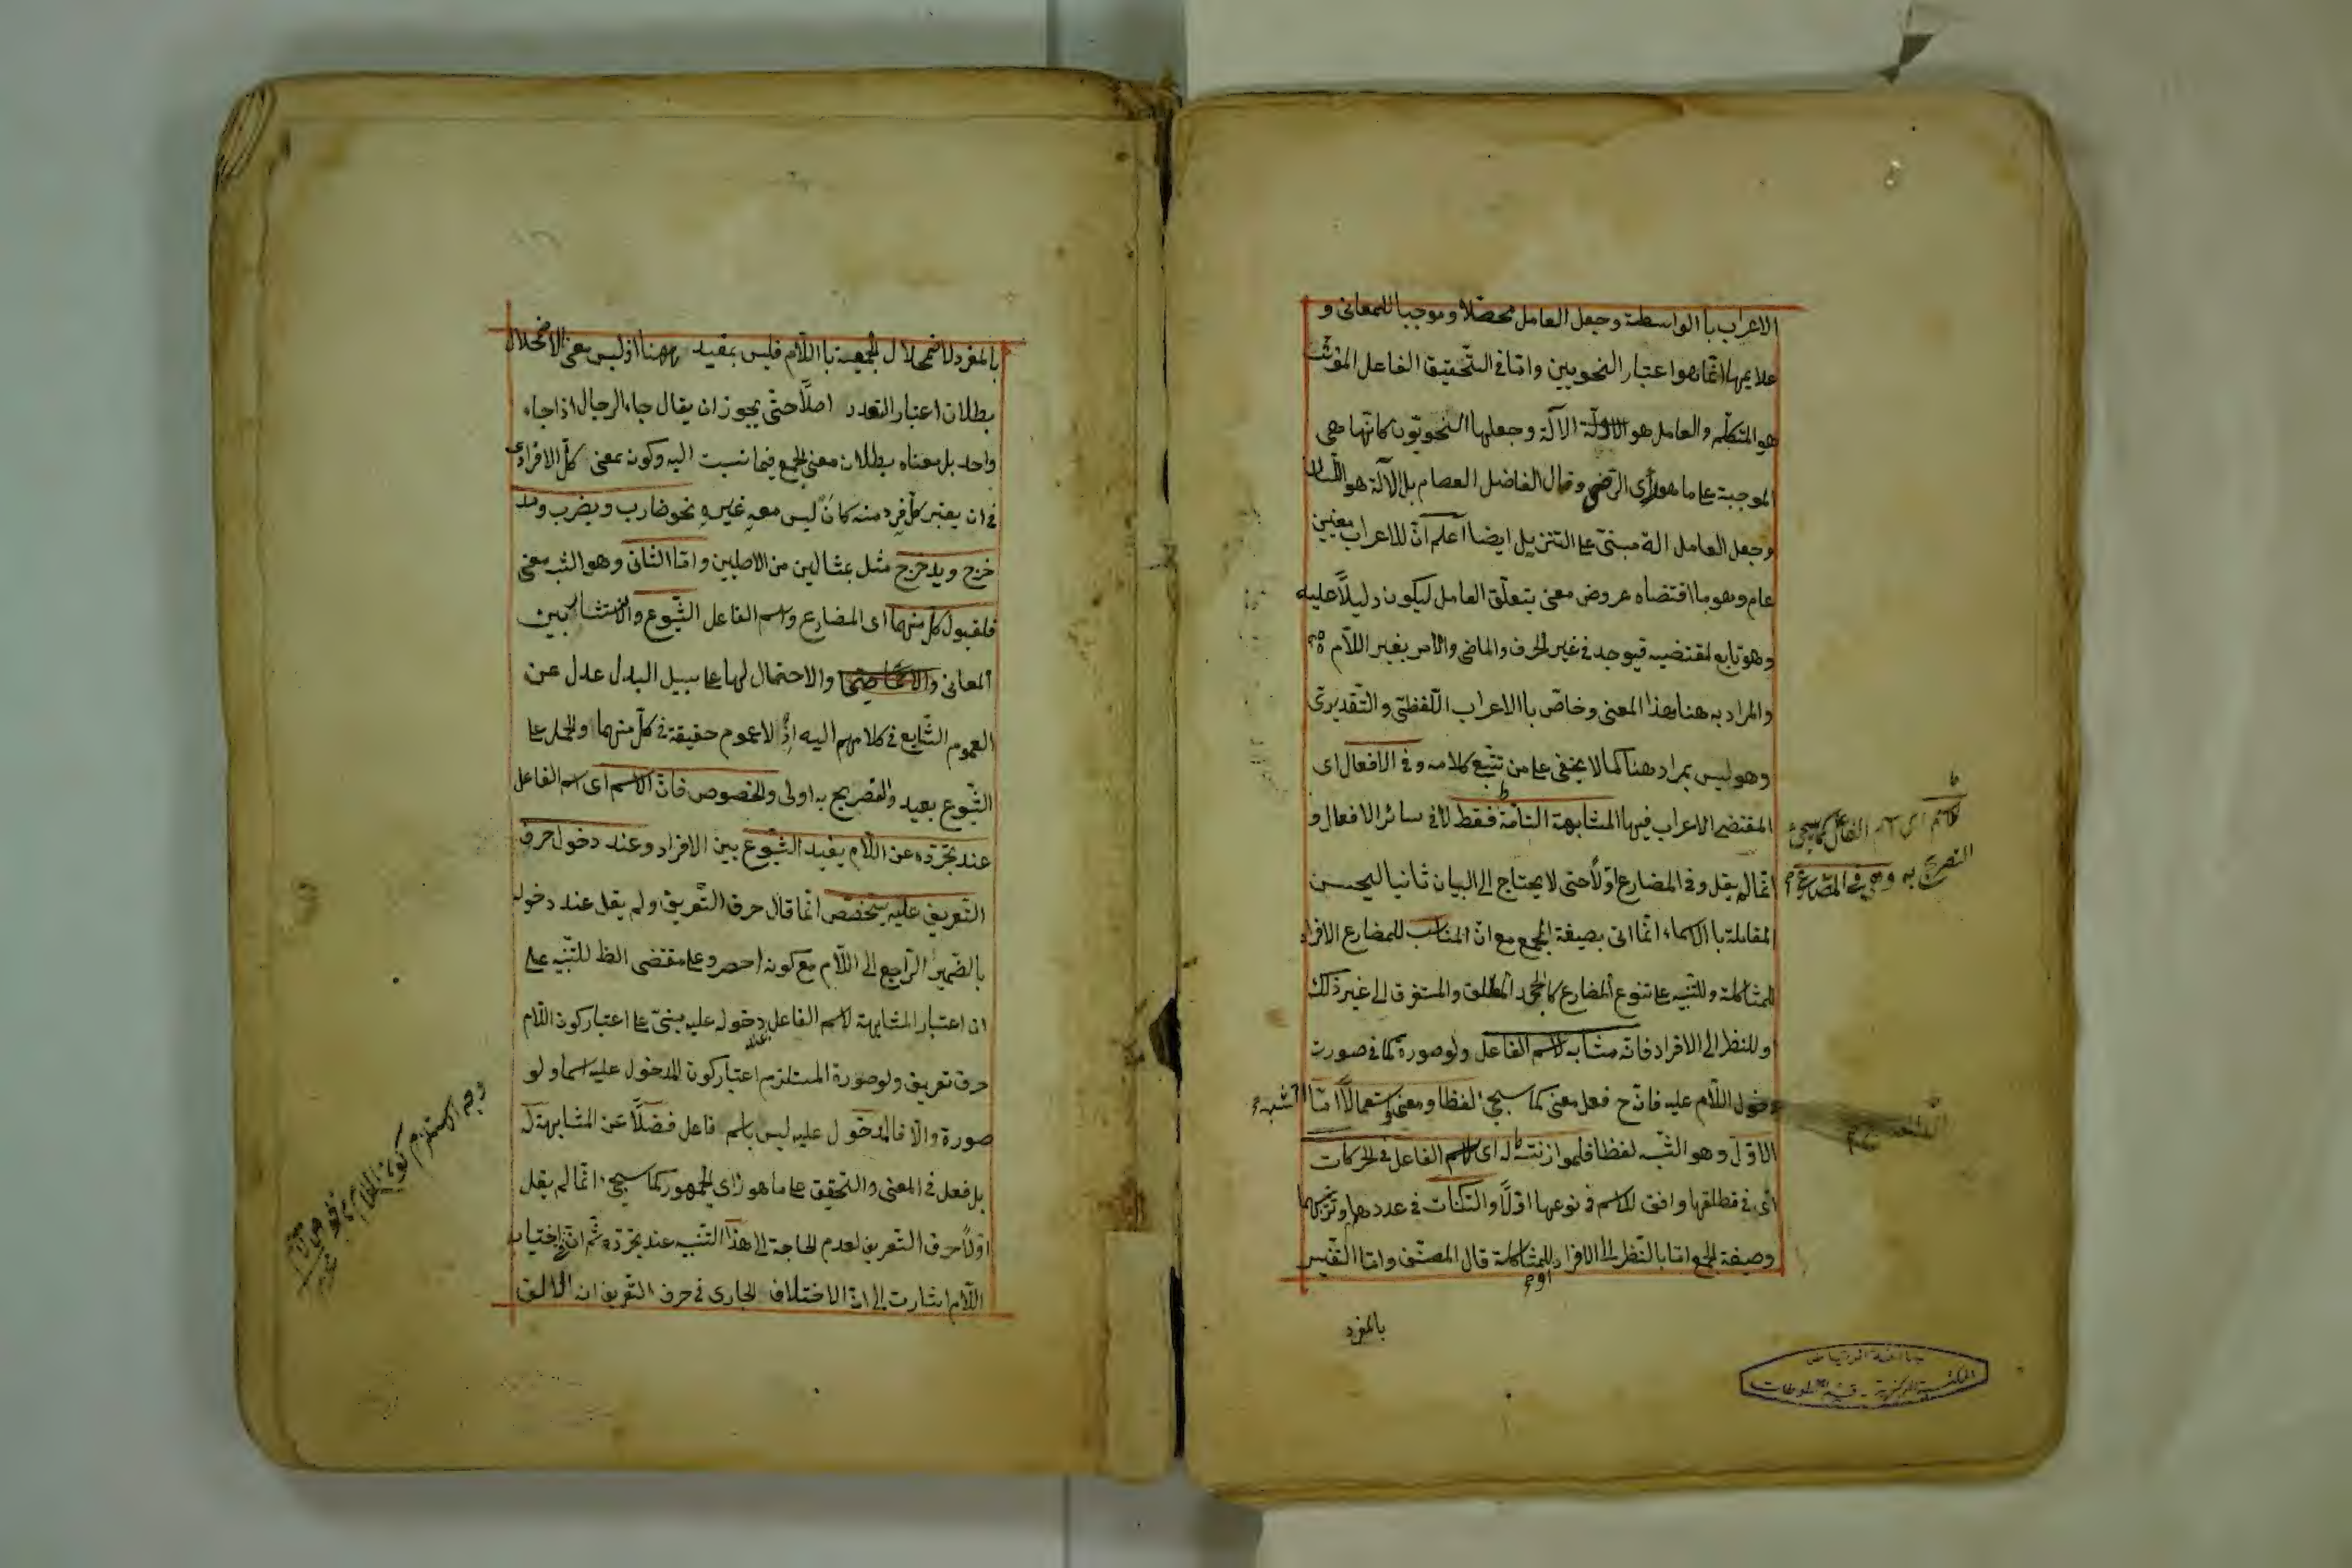 الاعراب با الواسطة وجعل العامل محصّلا وموجبا للمعانى و
علايمها انّما هو اعتبار النحويين وامّا فى التّحقيق الفاعل المؤثّر
هو المتكلّم والعامل هو الآلة وجعلها النّحويّون كانّها هى
الموجبة على ما هو رأى الرّضى وقال الفاضل العصام بل الآلة هو اللّسان
وجعل العامل الة مبنىّ على التنزيل ايضا اعلم انّ للاعراب معنيين
عام وهو ما اقتضاه عروض معنى يتعلّق العامل ليكون دليلاً عليه
وهو تابع لمقتضيه فيوجد فى غير الحرف والماضى والامر بغير اللّام
والمراد به هنا هذا المعنى وخاصّ با الاعراب اللّفظىّ والتّقديرىّ
وهو ليس بمراد هنا كما لا يخفى على من تتبّع كلامه وفى الافعال اى
المقتضى الاعراب فيها المشابهة التامّة فقط لا فى سائر الافعال و
انّما لم يقل وفى المضارع اوّلاً حتى لا يحتاج الى البيان ثانيا ليحسن
المقابلة با الاسماء انّما اتى بصيغة الجمع مع انّ المناسب للمضارع الافراد
للمشاكلة وللتنبيه على تنوع المضارع كالمجرد المطلق والمستغرق الى غير ذلك
وللنظر الى الافراد فانّه مشابه لاسم الفاعل ولو صورة كما فى صورت
دخول اللّام عليه فانّه ح فعل معنى كما سيجئ لفظا ومعنى واستعمالاً امّا
الاوّل وهو الشّبه لفظا فلموازنته له اى لاسم الفاعل فى الحركات
اى فى مطلقها وافق للاسم فى نوعها اوّلاً والسّكنات فى عددهما وترتيبهما
وصيغة الجمع امّا بالنّظر الى الافراد للمشاكلة قال المصنّف وامّا التّفسير
بالمفرد
لاسم اى اسم الفاعل كما سيجئ
التصريح به
جامعة الرياض
المكتبة المركزية - قسم المخطوطات
بالمفرد لاضمحلال الجمعية با اللّام فليس بمفيد ههنا اذ ليس معنى الاضمحلال
بطلان اعتبار التعدد اصلاً حتّى يجوز ان يقال جاء الرجال اذا جاء
واحد بل معناه بطلان معنى الجمع فيما نسبت اليه وكونه بمعنى كلّ الافرادى
فى ان يعتبر كلّ فرد منه كان ليس معه غيره نحو ضارب ويضرب ومد
خرج ويدحرج مثل بمثالين من الاصلين وامّا الثّانى وهو الشبه معنى
فلقبول كلّ منهما اى المضارع واسم الفاعل الشّيوع والانتشار بين
المعانى والاحتمال لها على سبيل البدل عدل عن
العموم الشّايع فى كلامهم اليه اذ لا عموم حقيقة فى كلّ منهما والحمل على
الشّيوع بعيد والتصريح به اولى والخصوص فانّ الاسم اى اسم الفاعل
عند تجرّده عن اللّام يفيد الشّيوع بين الافراد وعند دخول حرف
التّعريف عليه يتخصّص انّما قال حرف التّعريف ولم يقل عند دخوله
بالضّمير الرّاجع الى اللّام مع كونه احصر وعلى مقتضى الظ للتّنبيه على
ان اعتبار المشابهة لاسم الفاعل عند دخوله عليه مبنىّ على اعتبار كون اللّام
حرف تعريف ولو صورة المستلزم اعتبار كون المدخول عليه اسما ولو
صورة والّا فالمدخول عليه ليس باسم فاعل فضلاً عن المشابهة له
بل فعل فى المعنى والتحقيق على ما هو رأى الجمهور كما سيجئ انّما لم يقل
اوّلاً حرف التعريف لعدم الحاجة الى هذا التّنبيه عند تجرّده ثمّ انّ فى اختيار
اللّام اشارت الى انّ الاختلاف الجارى فى حرف التّعريف انه الالف